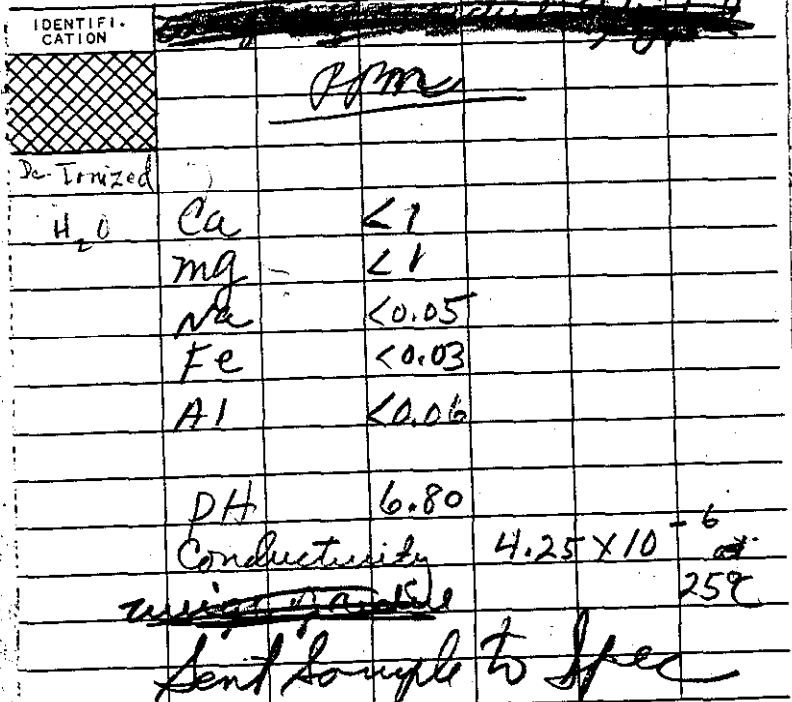 IDENTIFI-
CATION
ppm
De-Ionized
H2O Ca <1
mg <1
Na <0.05
Fe <0.03
Al <0.06
pH 6.80
Conductivity 4.25 X 10-6 at
25°C
Sent Sample to Spec